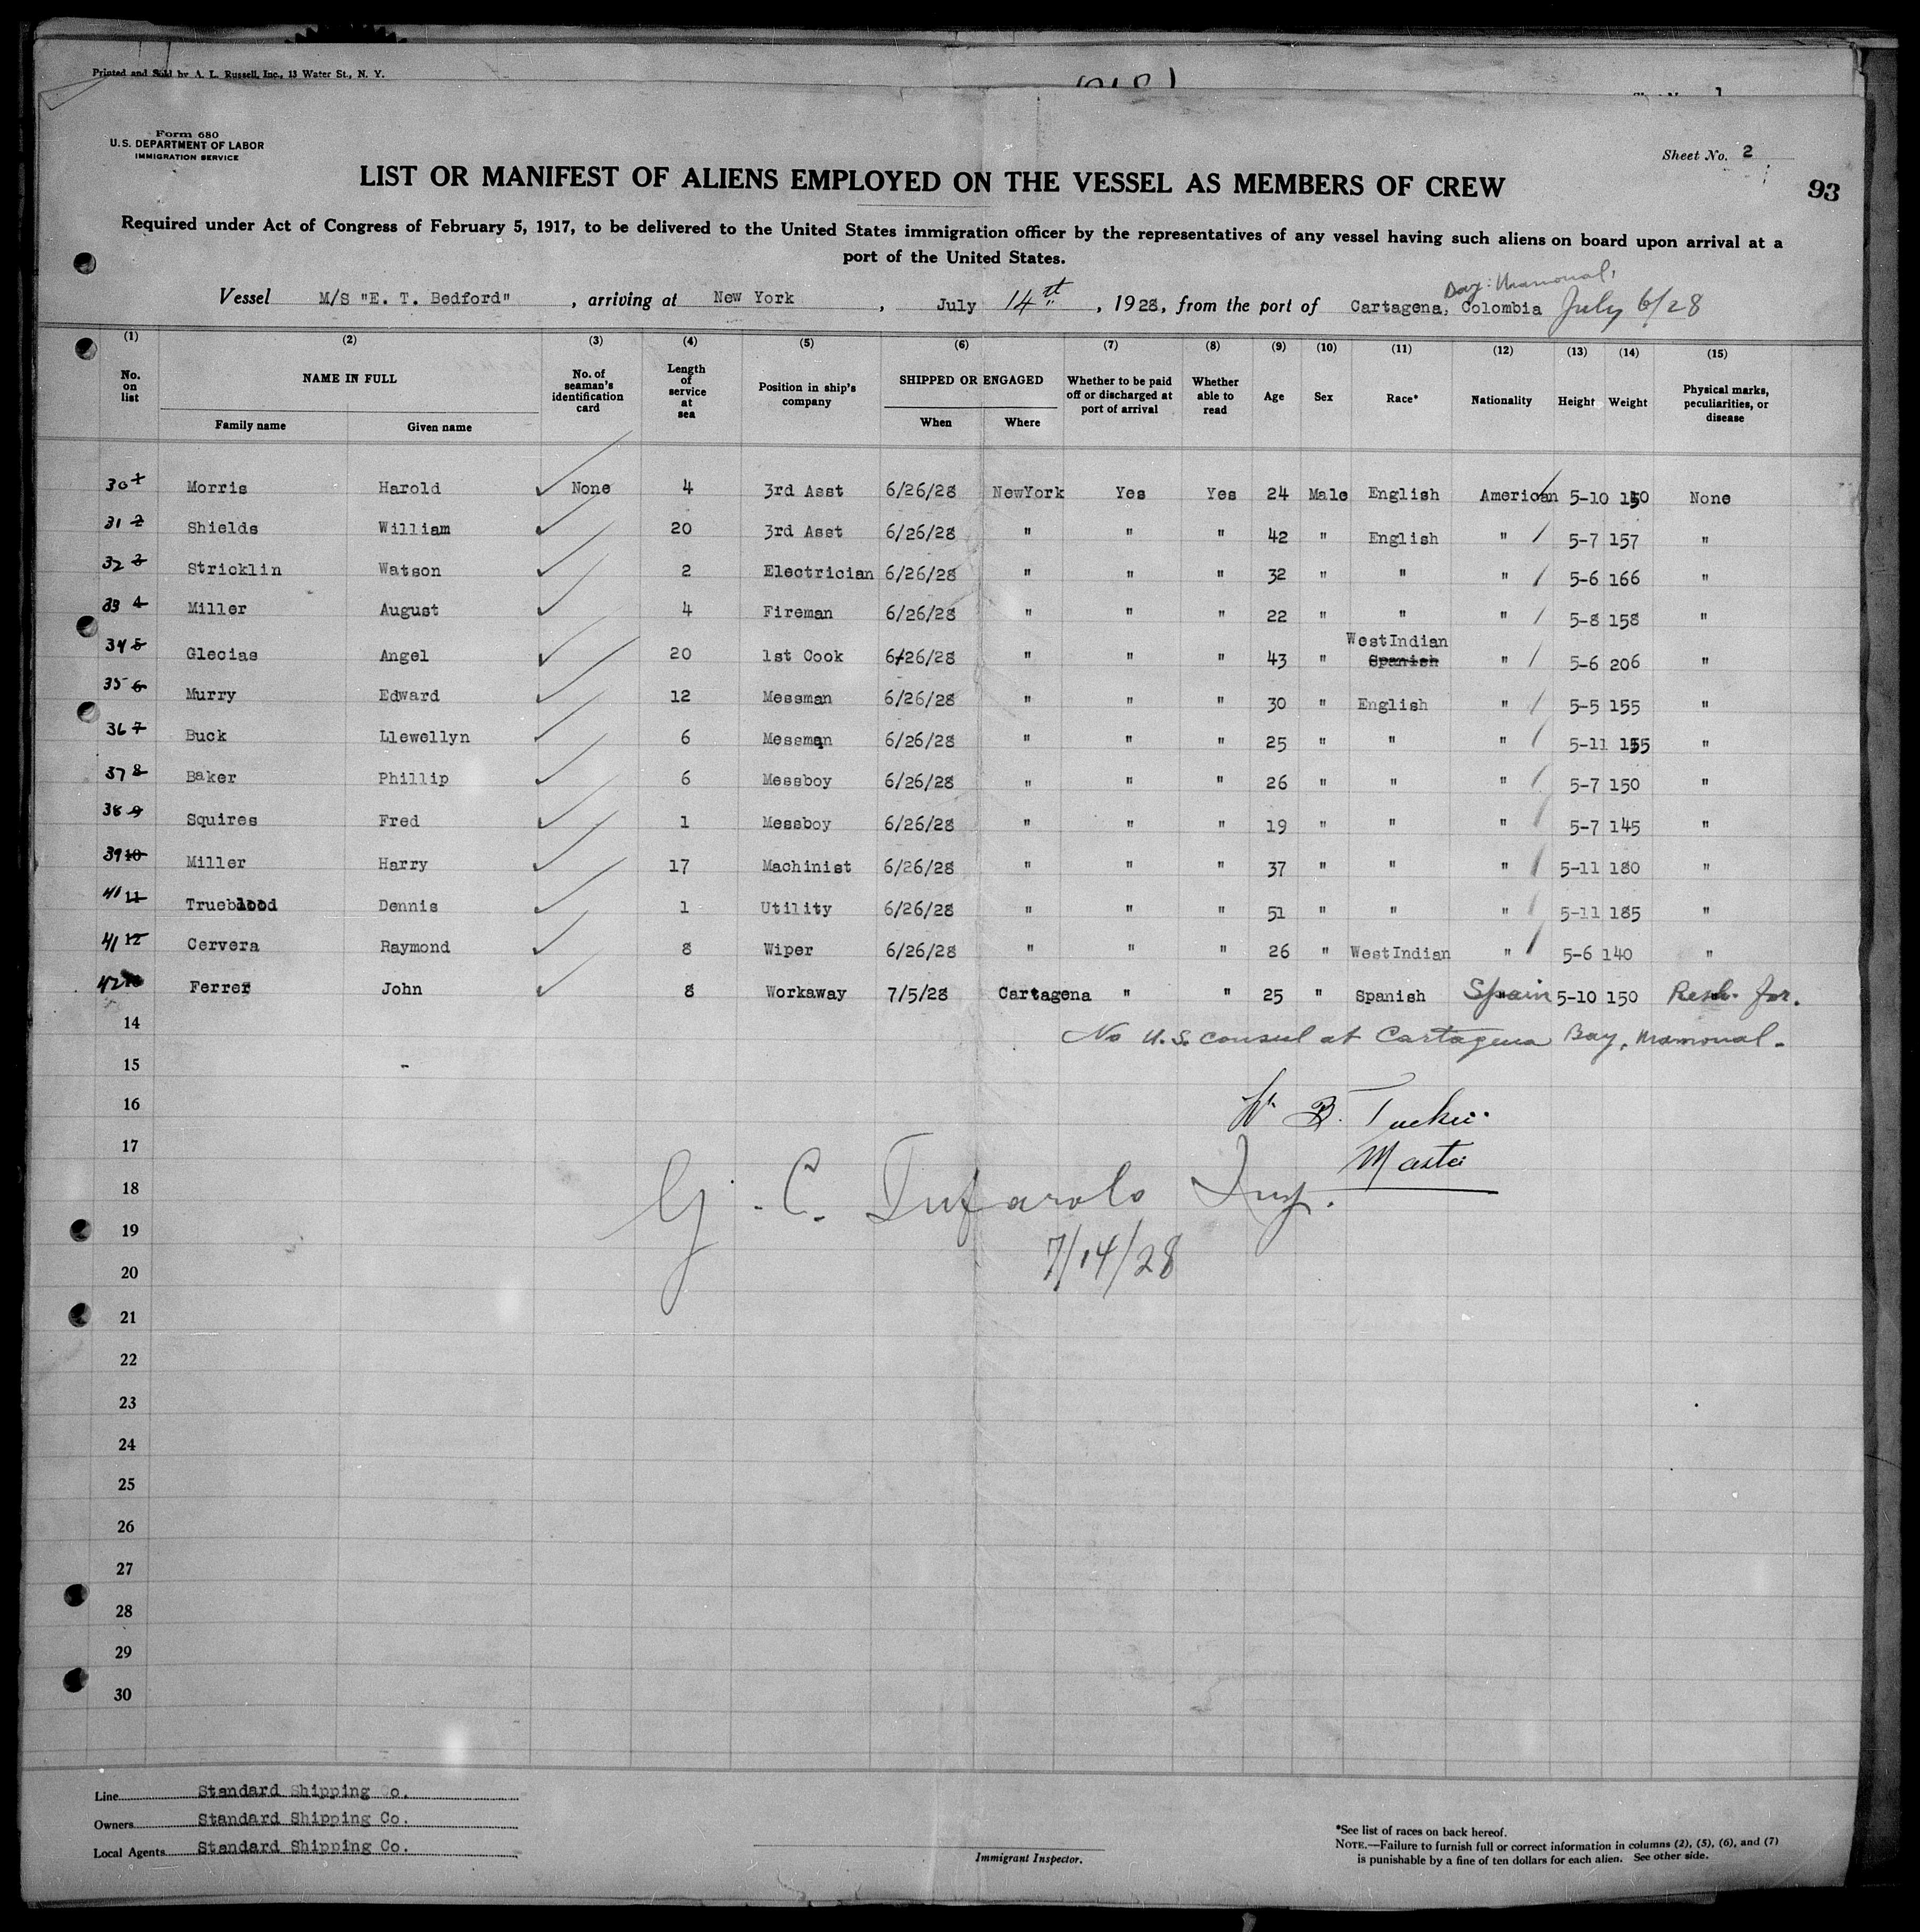 Printed and Sold by A. L. Russell, Inc., 13 Water St., N. Y.
Form 680
U.S. DEPARTMENT OF LABOR
IMMIGRATION SERVICE
Sheet No. 2
LIST OR MANIFEST OF ALIENS EMPLOYED ON THE VESSEL AS MEMBERS OF CREW
93
Required under Act of Congress of February 5, 1917, to be delivered to the United States immigration officer by the representatives of any vessel having such aliens on board upon arrival at a
port of the United States.
Bay: Mamonal,
Vessel M/S "E. T. Bedford" , arriving at New York , July 14st , 1928, from the port of Cartagena, Colombia July 6/28
(1) (2) (3) (4) (5) (6) (7) (8) (9) (10) (11) (12) (13) (14) (15)
No. on list NAME IN FULL Family name Given name No. of seaman's identification card Length of service at sea Position in ship's company SHIPPED OR ENGAGED When Where Whether to be paid off or discharged at port of arrival Whether able to read Age Sex Race* Nationality Height Weight Physical marks, peculiarities, or disease
30 1 Morris Harold None 4 3rd Asst 6/26/28 NewYork Yes Yes 24 Male English American 5-10 150 None
31 2 Shields William 20 3rd Asst 6/26/28 " " " 42 " English " 5-7 157 "
32 3 Stricklin Watson 2 Electrician 6/26/28 " " " 32 " " " 5-6 166 "
33 4 Miller August 4 Fireman 6/26/28 " " " 22 " " " 5-8 158 "
34 5 Glecias Angel 20 1st Cook 6/26/28 " " " 43 " WestIndian Spanish " 5-6 206 "
35 6 Murry Edward 12 Messman 6/26/28 " " " 30 " English " 5-5 155 "
36 7 Buck Llewellyn 6 Messman 6/26/28 " " " 25 " " " 5-11 155 "
37 8 Baker Phillip 6 Messboy 6/26/28 " " " 26 " " " 5-7 150 "
38 9 Squires Fred 1 Messboy 6/26/28 " " " 19 " " " 5-7 145 "
39 10 Miller Harry 17 Machinist 6/26/28 " " " 37 " " " 5-11 180 "
41 11 Trueblood Dennis 1 Utility 6/26/28 " " " 51 " " " 5-11 185 "
41 12 Cervera Raymond 8 Wiper 6/26/28 " " " 26 " WestIndian " 5-6 140 "
42 Ferrer John 8 Workaway 7/5/28 Cartagena " " 25 " Spanish Spain 5-10 150
14 No U.S. consul at Cartagena Bay, Mamonal.
15
16 B. Tucker
17 Master
18 G. C. Tufarolo Insp.
19
7/14/28
20
21
22
23
24
25
26
27
28
29
30
Line Standard Shipping Co.
Owners Standard Shipping Co.
Local Agents Standard Shipping Co.
Immigrant Inspector.
*See list of races on back hereof.
NOTE.—Failure to furnish full or correct information in columns (2), (5), (6), and (7)
is punishable by a fine of ten dollars for each alien. See other side.